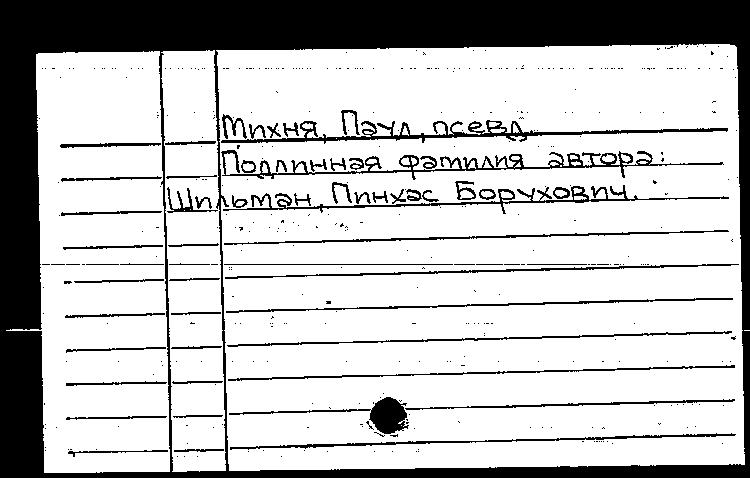 Михня, Паул, псевд.
Подлинная фамилия автора:
Шильман, Пинхас Борухович.